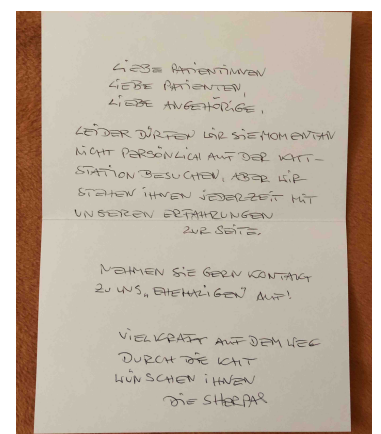 LIEBE PATIENTINNEN
LIEBE PATIENTEN,
LIEBE ANGEHÖRIGE,
LEIDER DÜRFEN WIR SIE MOMENTAN
NICHT PERSÖNLICH AUF DER KMT-
STATION BESUCHEN, ABER WIR
STEHEN IHNEN JEDERZEIT MIT
UNSEREN ERFAHRUNGEN
ZUR SEITE.
NEHMEN SIE GERN KONTAKT
ZU UNS „EHEMALIGEN" AUF!
VIEL KRAFT AUF DEM WEG
DURCH DIE KMT
WÜNSCHEN IHNEN
DIE SHERPAS